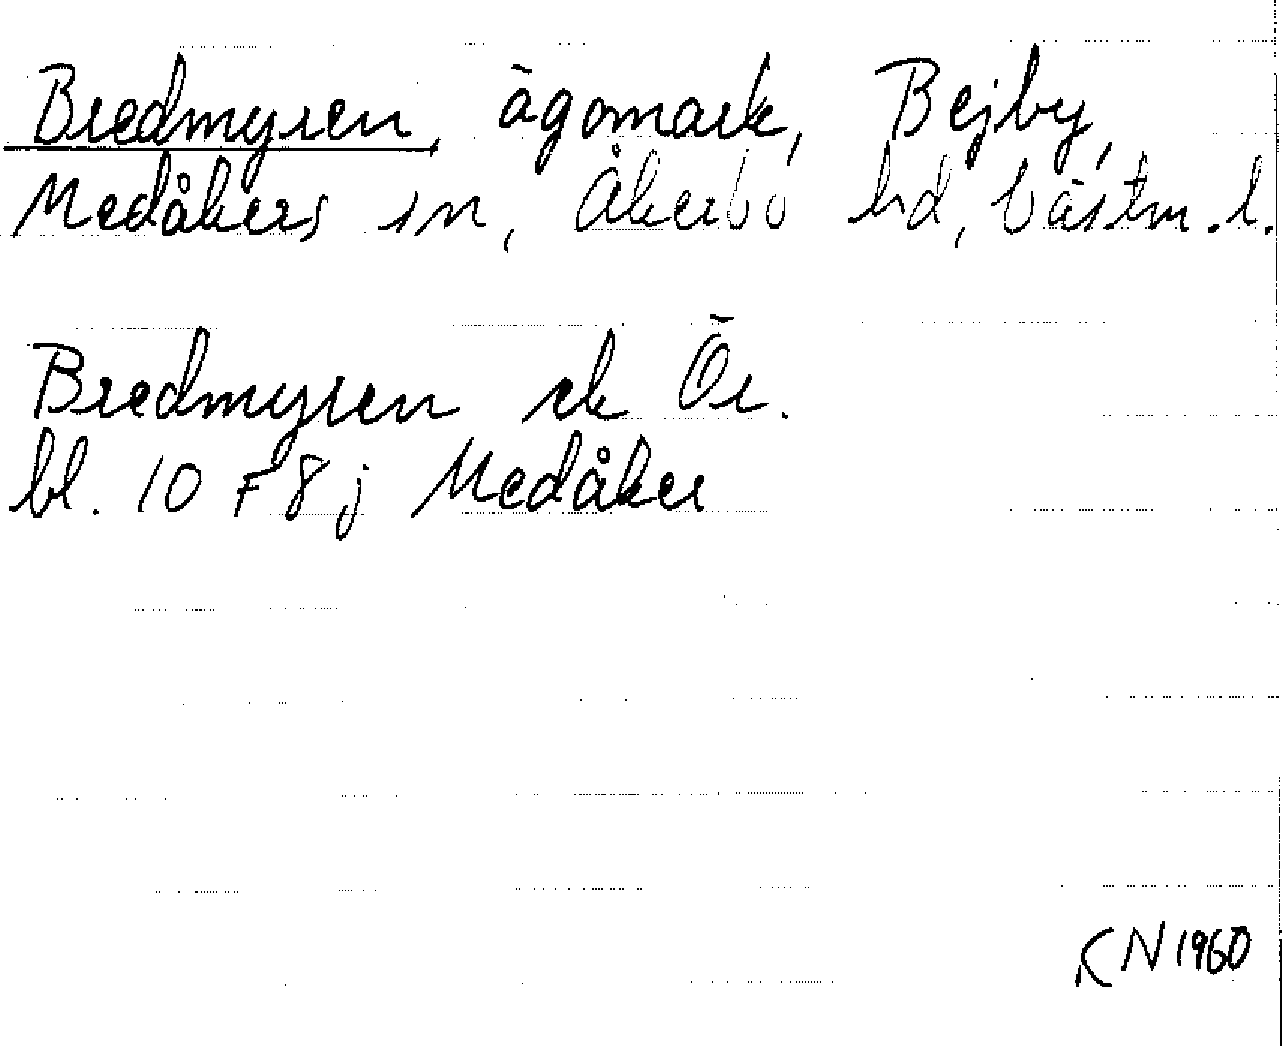 Bredmyren, ägomark, Bejby,
Medåkers sn, Åkerbo hd, Västm. l.
Bredmyren ek Ör.
bl. 10 F 8 j Medåker
KN 1960